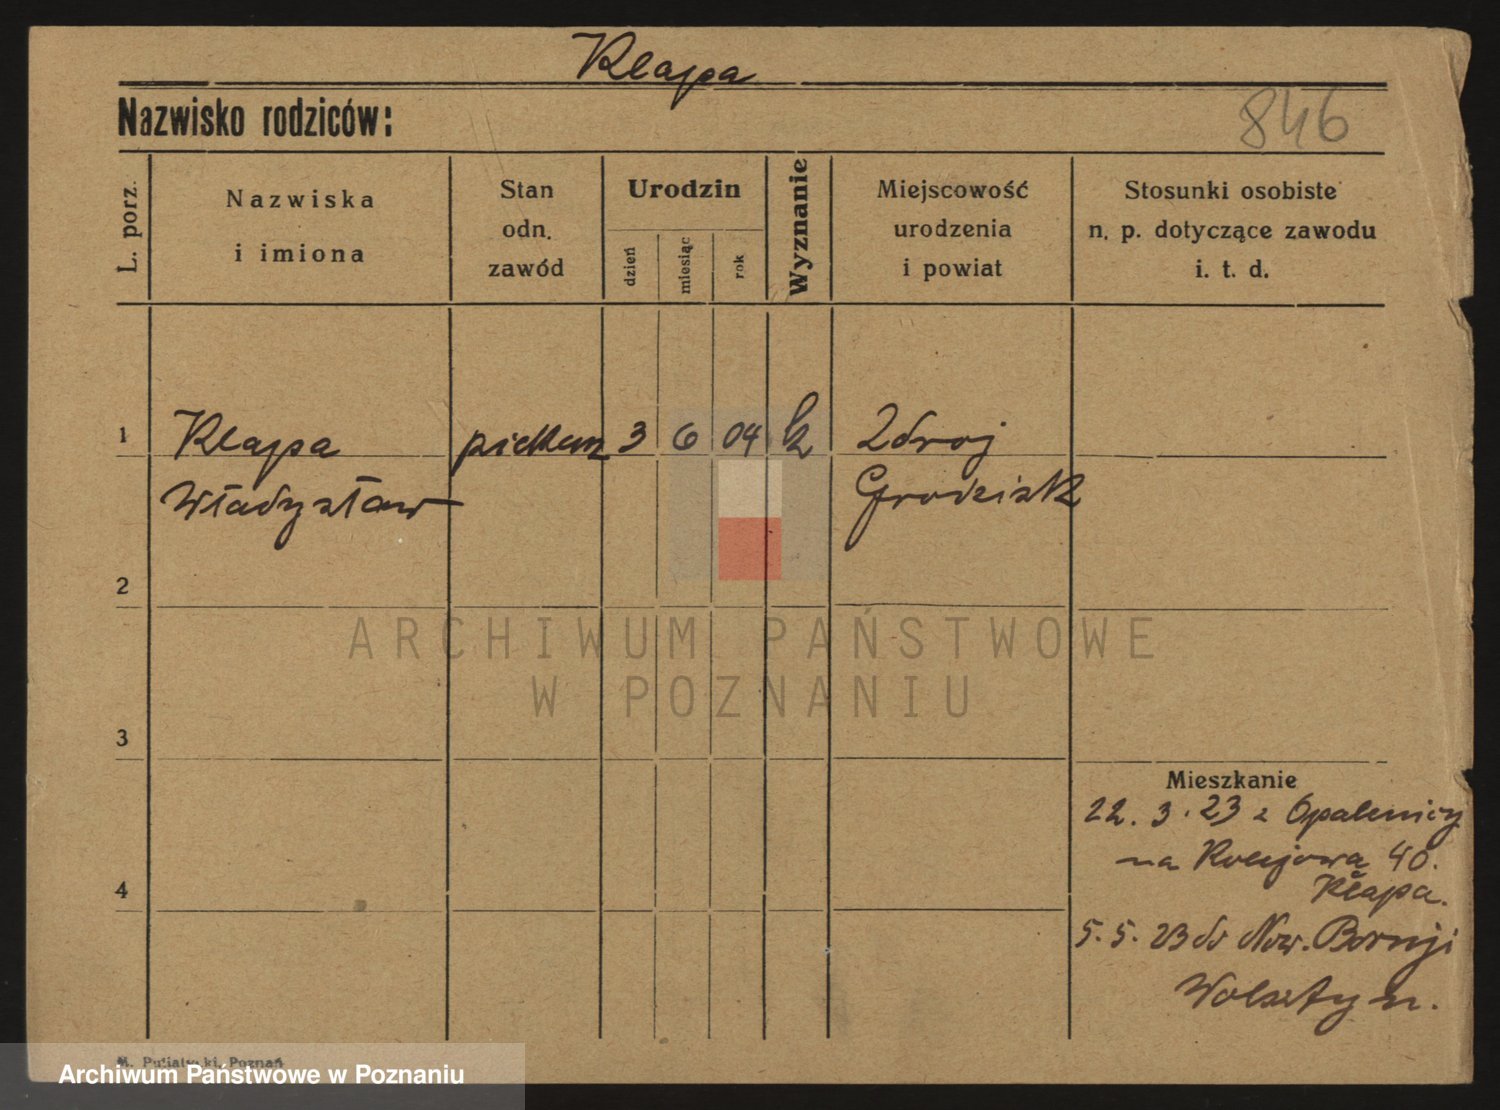 Klapa
Nazwisko rodziców:
846
L. porz.
Nazwiska
i imiona
Stan
odn.
zawód
Urodzin
dzień
miesiąc
rok
Wyznanie
Miejscowość
urodzenia
i powiat
Stosunki osobiste
n. p. dotyczące zawodu
i. t. d.
1
Klapa
piekarz
3
6
04
k
Zdroj
Władysław
Grodzisk
2
ARCHIWUM PAŃSTWOWE
W POZNANIU
3
Mieszkanie
22. 3. 23 z Opalenicy
na Kolejową 40.
4
Kłapa.
5. 5. 23 do Now. Boruji
Wolsztyn.
Poznań
Archiwum Państwowe w Poznaniu